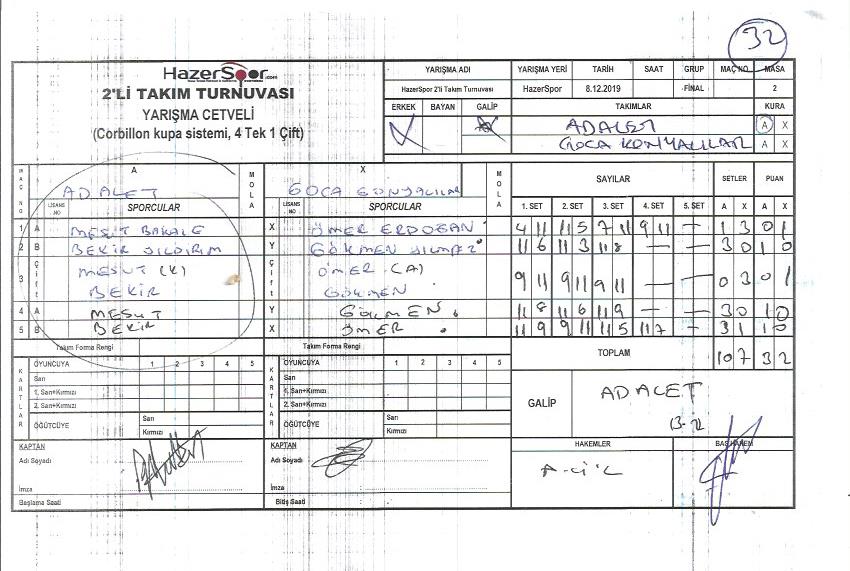 32
HazerSpor.com
2'Lİ TAKIM TURNUVASI
YARIŞMA CETVELİ
(Corbillon kupa sistemi, 4 Tek 1 Çift)
YARIŞMA ADI YARIŞMA YERİ TARİH SAAT GRUP MAÇ NO MASA
HazerSpor 2'li Takım Turnuvası HazerSpor 8.12.2019 FİNAL 2
ERKEK BAYAN GALİP TAKIMLAR KURA
ADALET A X
GOCA KONYALILAR A X
MAÇ NO A MOLA X MOLA SAYILAR SETLER PUAN
ADALET GOCA GONYALILAR
LİSANS NO SPORCULAR LİSANS NO SPORCULAR 1. SET 2. SET 3. SET 4. SET 5. SET A X A X
1 A MESUT X ÖMER ERDOĞAN 4 11 11 5 7 11 9 11 — 1 3 0 1
2 B BEKİR YILDIRIM Y GÖKMEN YILMAZ 11 6 11 3 11 8 — — 3 0 1 0
3 Çift MESUT (K) Çift ÖMER (A) 9 11 9 11 9 11 — — 0 3 0 1
BEKİR GÖKMEN
4 A MESUT Y GÖKMEN 11 8 11 6 11 9 — — 3 0 1 0
5 B BEKİR X ÖMER 11 9 9 11 11 5 11 7 — 3 1 1 0
Takım Forma Rengi Takım Forma Rengi TOPLAM 10 7 3 2
KARTLAR OYUNCUYA 1 2 3 4 5 KARTLAR OYUNCUYA 1 2 3 4 5
Sarı Sarı
1. Sarı+Kırmızı 1. Sarı+Kırmızı
2. Sarı+Kırmızı 2. Sarı+Kırmızı
GALİP ADALET
ÖĞÜTCÜYE Sarı ÖĞÜTCÜYE Sarı
Kırmızı Kırmızı
KAPTAN KAPTAN HAKEMLER BAŞHAKEM
Adı Soyadı Adı Soyadı
İmza İmza
Başlama Saati Bitiş Saati :